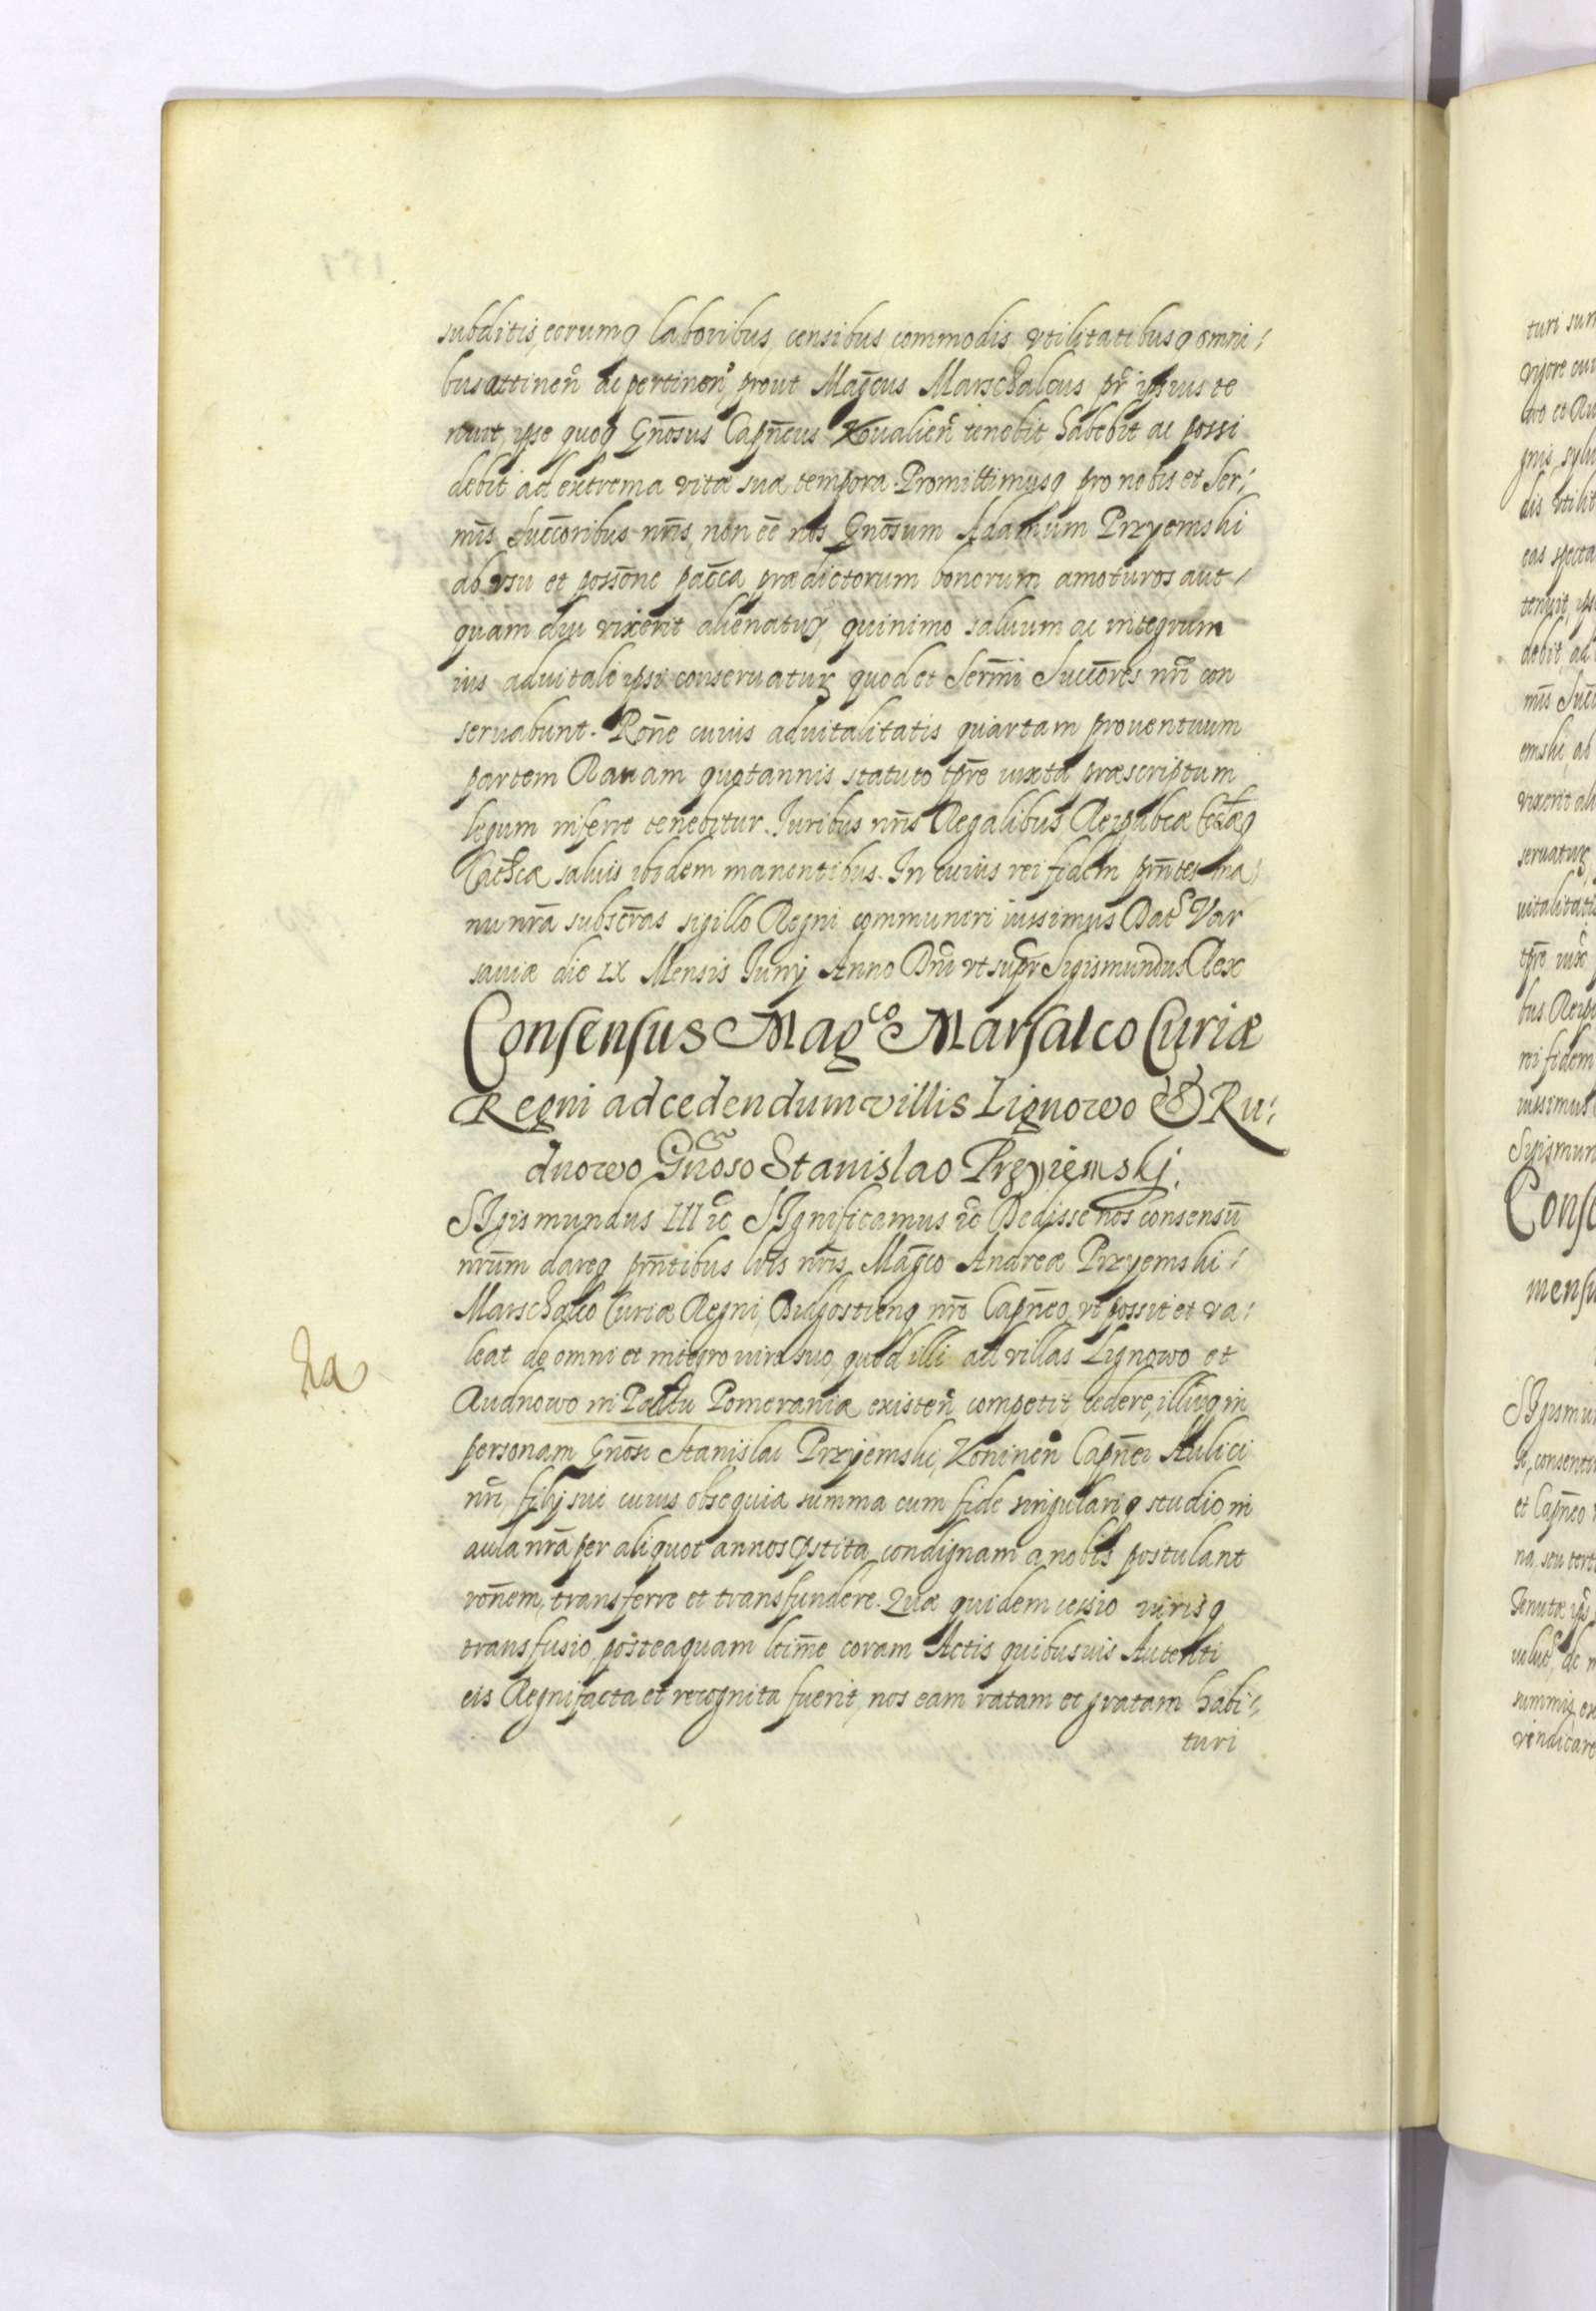 subditis, eorumq̢ laboribus, censibus, commodis vtilitatibusq̢ omni,
bus attinen̄ ac pertinen̄, prout Mag̃cus Marschalcus pr̃ ipsius te
nuit, ipse quoq̢ Gn̄osus Capn̄eus Kovalien̄ tenebit, habebit ac possi
debit ad extrema vitæ suæ tempora. Promittimusq̢ pro nobis et Ser,
mis Succoribus nr̄is, non eē nos Gn̄osum Adamum Przyemski
ab vsu et possone pacca prædictorum bonorum amoturos aut
quam diu vixerit alienaturos, quinimo saluum ac integrum
ius aduitale ipsi conseruaturos, quod et Serm̄i Succores nr̄i con
seruabunt. Rōne cuius aduitalitatis quartam prouentuum
partem Rauam quotannis statuto tpr̄e iuxta præscriptum
legum inferre tenebitur. Iuribus nr̄is Regalibus Reipubcæ Ecclæq̢
Cathcæ saluis ibidem manentibus. In cuius rei fidem pn̄tes ma
nu nr̄a subscr̄as sigillo Regni communiri iussimus Dat Var
sauiæ die IX Mensis Iunij Anno Dn̄i vt supr Sigismundus Rex
Consensus Magco Marsalco Curiæ
Regni ad cedendum villis Lignowo & Ru,
dnowo Gnoso Stanislao Przyiemskj.
SIgismundus III etc SIgnificamus etc Dedisse nos consensū
nr̄um dareq̢ pn̄tibus lris nr̄is Mag̃co Andreæ Przyemski
Marschalco Curiæ Regni, Bidgostienq̢ nr̄o Capn̄eo, vt possit et va,
leat de omni et integro iure suo, quod illi ad villas Lignowo et
Rudnowo in Palttu Pomeraniæ existen̄ competit cedere, illudq̢ in
personam Gn̄osi Stanislai Przyiemski, Koninen̄ Capn̄ei Aulici
nr̄i, filij sui cuius obsequia summa cum fide singulariq̢ studio, in
aula nr̄a per aliquot annos p̱stita condignam a nobis postulant
rōnem, transferre et transfundere. Quæ quidem cessio iurisq̢
transfusio, posteaquam ltime coram Actis quibusuis Autenti
cis Regni facta et recognita fuerit, nos eam ratam et gratam habi,
turi